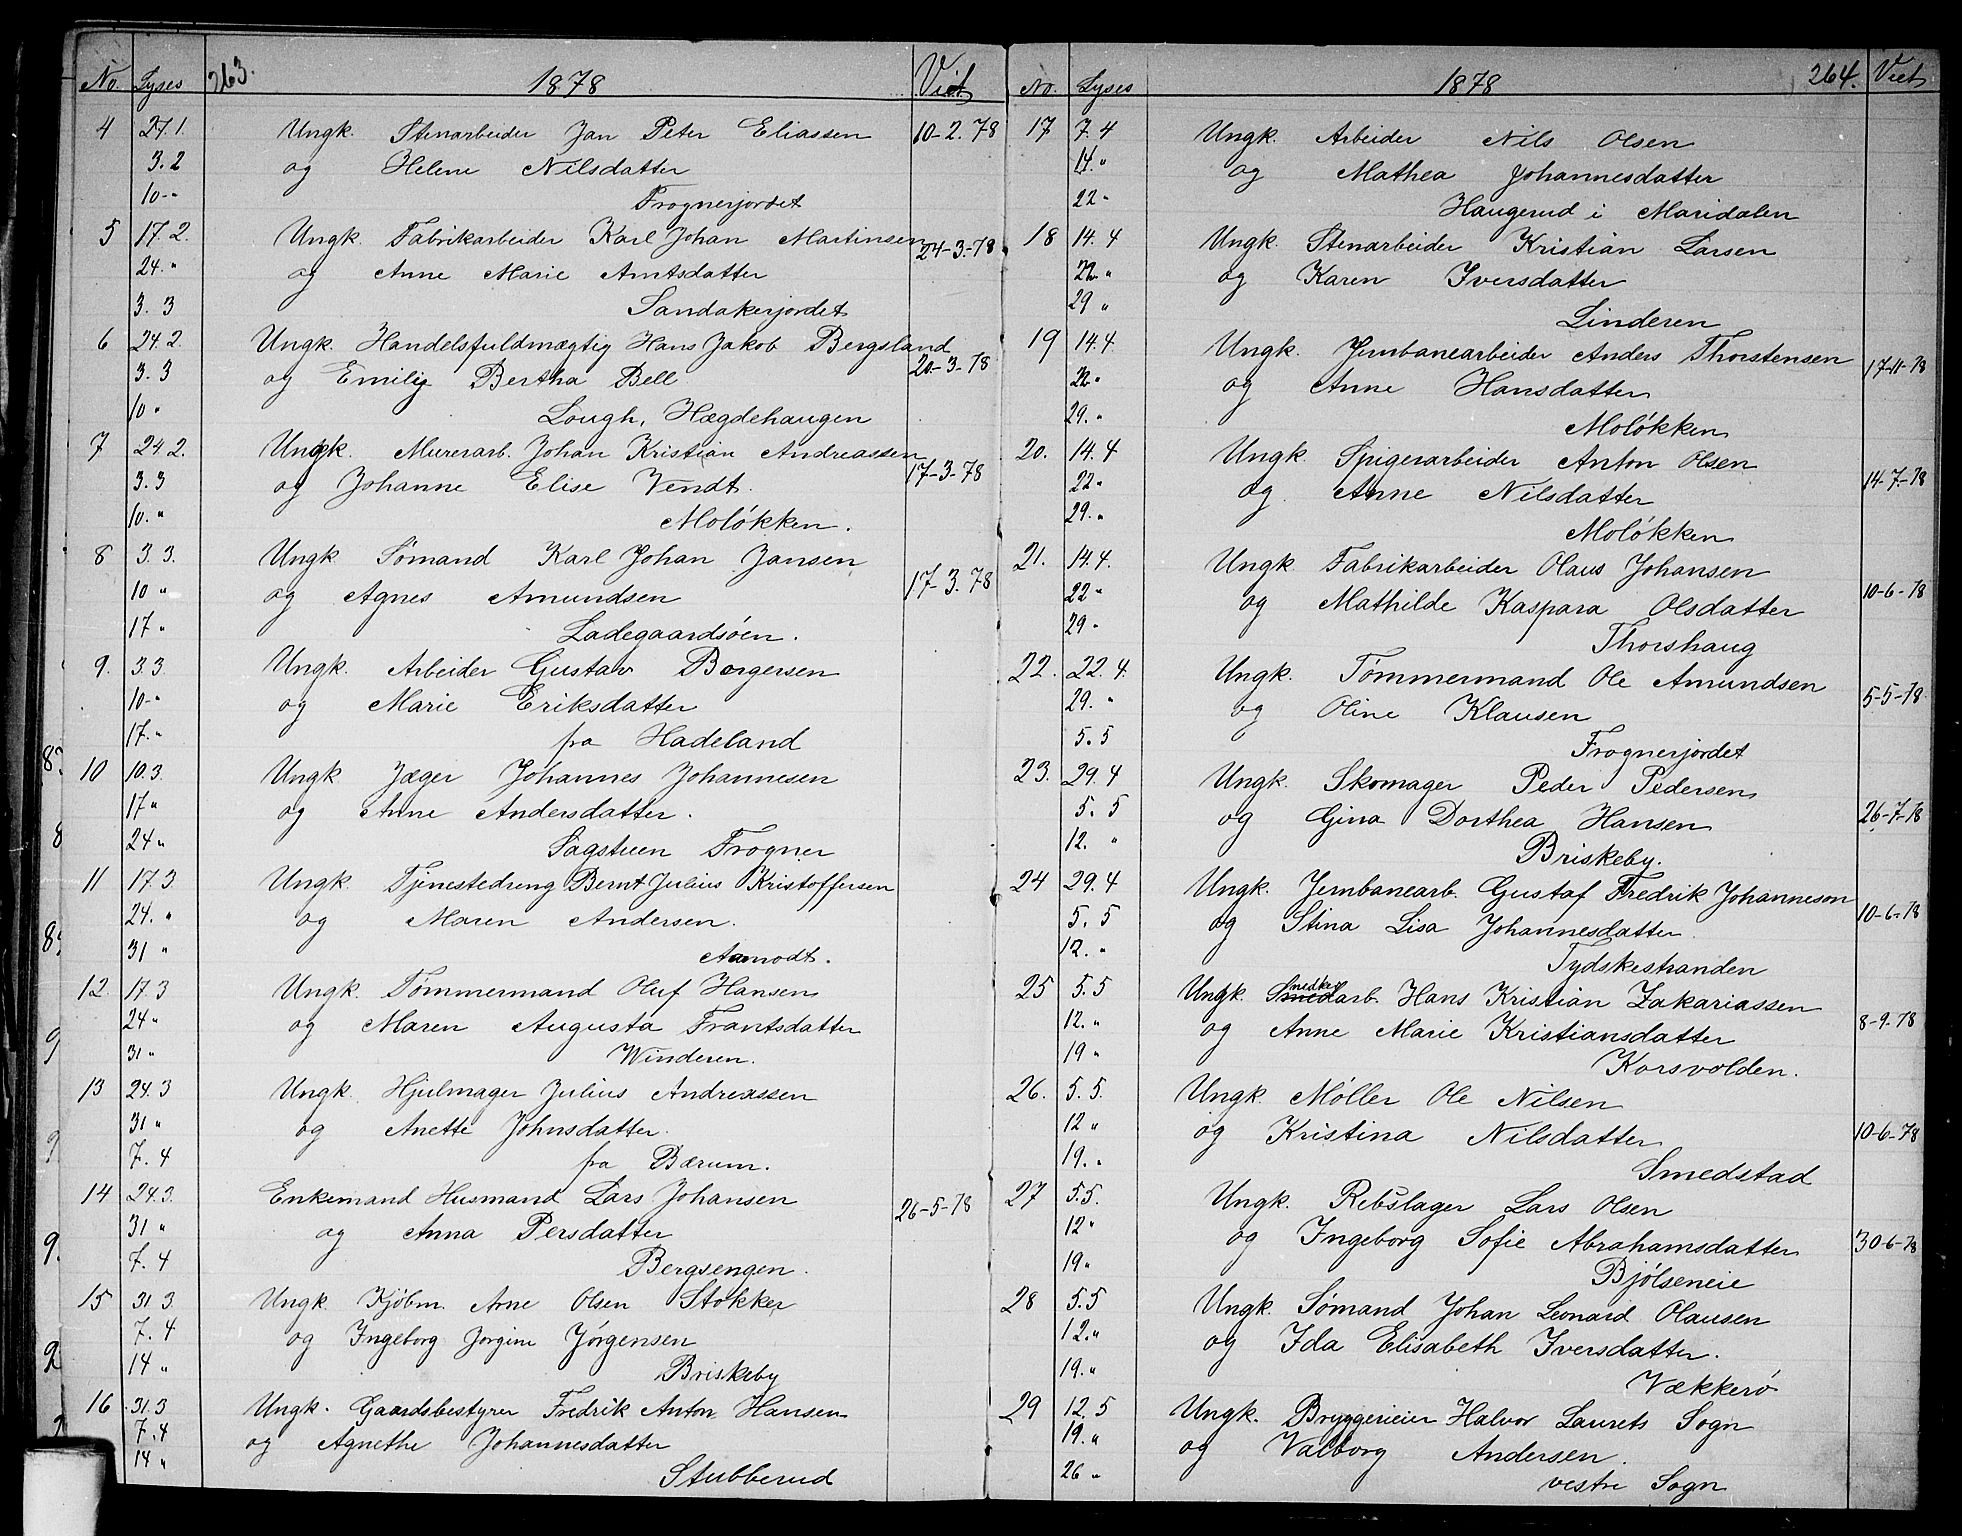 No. Lyses 263. 1878 Viet
4 27.1. Ungk. Stenarbeider Jan Peter Eliassen 10-2.78
3.2 og Helene Nilsdatter
10-" Frognerjordet
5 17.2. Ungk. Fabrikarbeider Karl Johan Martinsen 24-3.-78
24." og Anne Marie Amtsdatter
3.3 Sandakerjordet
6 24.2. Ungk. Handelsfuldmægtig Hans Jakob Bergsland 20-3-78
3.3 og Emilie Bertha Bell
10 " Lough, Hægdehaugen
7 24 2. Ungk. Murerarb. Johan Kristian Andreassen 17-3-78
3.3 og Johanne Elise Vendt.
10. " Moløkken.
8 3.3. Ungk Sømand Karl Johan Jansen 17-3.78
10 " og Agnes Amundsen
17 " Ladegaardsøen.
9. 3.3 Ungk. Arbeider Gustav Borgersen
10-" og Marie Eriksdatter
17." fra Hadeland
10 10.3. Ungk Jæger Johannes Johannesen
17 " og Anne Andersdatter.
24 " Sagstuen Frogner
11 17.3. Ungk. Tjenestedreng Bernt Julius Kristoffersen
24. " og Maren Andersen.
31 " Aamodt.
12. 17.3 Ungk. Tømmermand Oluf Hansen
24 " og Maren Augusta Frantsdatter
31 " Winderen.
13 24.3 Ungk. Hjulmager Julius Andreassen
31 " og Anette Johnsdatter.
7.4 fra Bærum.
14 24.3. Enkemand Husmand Lars Johansen 26-5-78
31 " og Anna Persdatter
7.4 Bergsengen.
15 31.3. Ungk Kjøbm. Arne Olsen Stokker
7.4 og Ingeborg Jorgine Jørgensen
14 " Briskeby
16 31.3 Ungk. Gaardsbestyrer Fredrik Anton Hansen
7.4 og Agnethe Johannesdatter
14 " Stubberud
No. Lyses 1878 264. Viet
17 7.4 Ungk. Arbeider Nils Olsen
14. " og Mathea Johannesdatter
22 " Haugerud i Maridalen
18 14.4 Ungk Stenarbeider Kristian Larsen
22 " og Karen Iversdatter
29 " Linderen
19 14.4. Ungk. Jernbanearbeider Anders Thorstensen 17-11-78
22 " og Anne Hansdatter
29. " Moløkken
20. 14.4 Ungk. Spigerarbeider Anton Olsen 14-7.-78
22 " og Anne Nilsdatter
29. " Moløkken
21. 14.4. Ungk. Fabrikarbeider Olaus Johansen 10-6-78
22 " og Mathilde Kaspara Olsdatter
29 " Thorshaug
22. 22.4. Ungk. Tømmermand Ole Amundsen 5-5-78
29. " og Oline Klausen
5.5 Frognerjordet
23. 29.4 Ungk. Skomager Peder Pedersen 26-7-78
5.5 og Gina Dorthea Hansen
12. " Briskeby.
24 29.4 Ungk. Jernbanearb. Gustaf Fredrik Johanneson 10-6-78
5.5 og Stina Lisa Johannesdatter
12. " Tydskestranden
25 5.5 Ungk. Snedkerarb. Hans Kristian Zakariassen 8-9.78
12. " og Anne Marie Kristiansdatter
19 " Korsvolden.
26. 5.5. Ungk. Møller Ole Nilsen
12 " og Kristina Nilsdatter 10-6-78
19. " Smedstad
27 5.5. Ungk. Rebslager Lars Olsen
12 " og Ingeborg Sofie Abrahamsdatter 30-6-78
19 " Bjølseneie
28 5.5 Ungk. Sømand Johan Leonard Olausen
12. " og Ida Elisabeth Iversdatter.
19. " Vækkerø
29 12.5 Ungk. Bryggerieier Halvor Laurets Sogn
19. " og Valborg Andersen.
26 " vestre Sogn